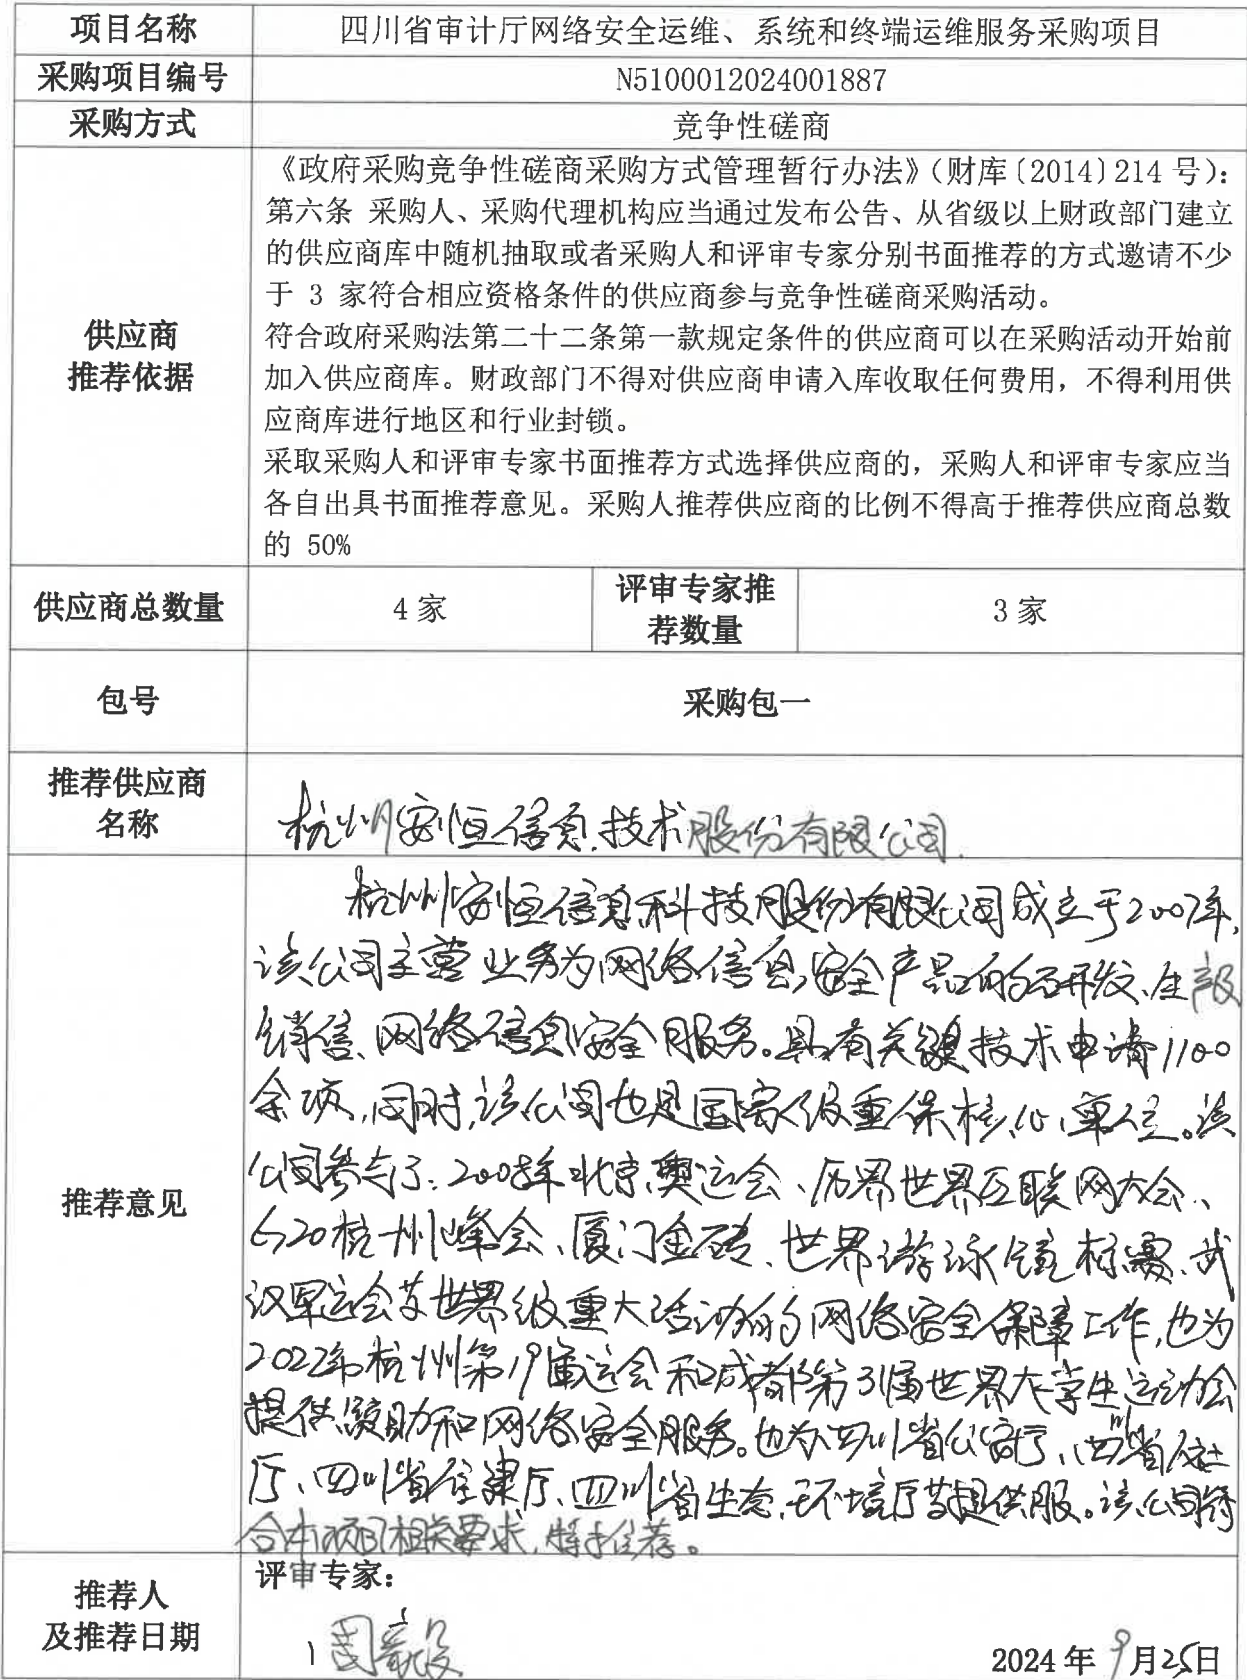 项目名称 四川省审计厅网络安全运维、系统和终端运维服务采购项目
采购项目编号 N5100012024001887
采购方式 竞争性磋商
供应商
推荐依据
《政府采购竞争性磋商采购方式管理暂行办法》（财库〔2014〕214 号）：
第六条 采购人、采购代理机构应当通过发布公告、从省级以上财政部门建立
的供应商库中随机抽取或者采购人和评审专家分别书面推荐的方式邀请不少
于 3 家符合相应资格条件的供应商参与竞争性磋商采购活动。
符合政府采购法第二十二条第一款规定条件的供应商可以在采购活动开始前
加入供应商库。财政部门不得对供应商申请入库收取任何费用，不得利用供
应商库进行地区和行业封锁。
采取采购人和评审专家书面推荐方式选择供应商的，采购人和评审专家应当
各自出具书面推荐意见。采购人推荐供应商的比例不得高于推荐供应商总数
的 50%
供应商总数量 4 家 评审专家推荐数量 3 家
包号 采购包一
推荐供应商
名称
杭州安恒信息技术股份有限公司
推荐意见
杭州安恒信息科技股份有限公司成立于2007年，
该公司主营业务为网络信息安全产品的研发、生产及
销售、网络信息安全服务。具有关键技术申请1100
余项，同时，该公司也是国家级重保核心单位。该
公司参与了：2008年北京奥运会、历界世界互联网大会、
G20杭州峰会、厦门金砖、世界游泳锦标赛、武
汉军运会等世界级重大活动的网络安全保障工作，也为
2022年杭州第19届运会和成都第31届世界大学生运动会
提供赞助和网络安全服务。也为四川省公安厅、四川省人社
厅、四川省住建厅、四川省生态环境厅等提供服。该公司符
合本项目相关要求，特推荐。
推荐人
及推荐日期
评审专家：
2024 年 9月25日